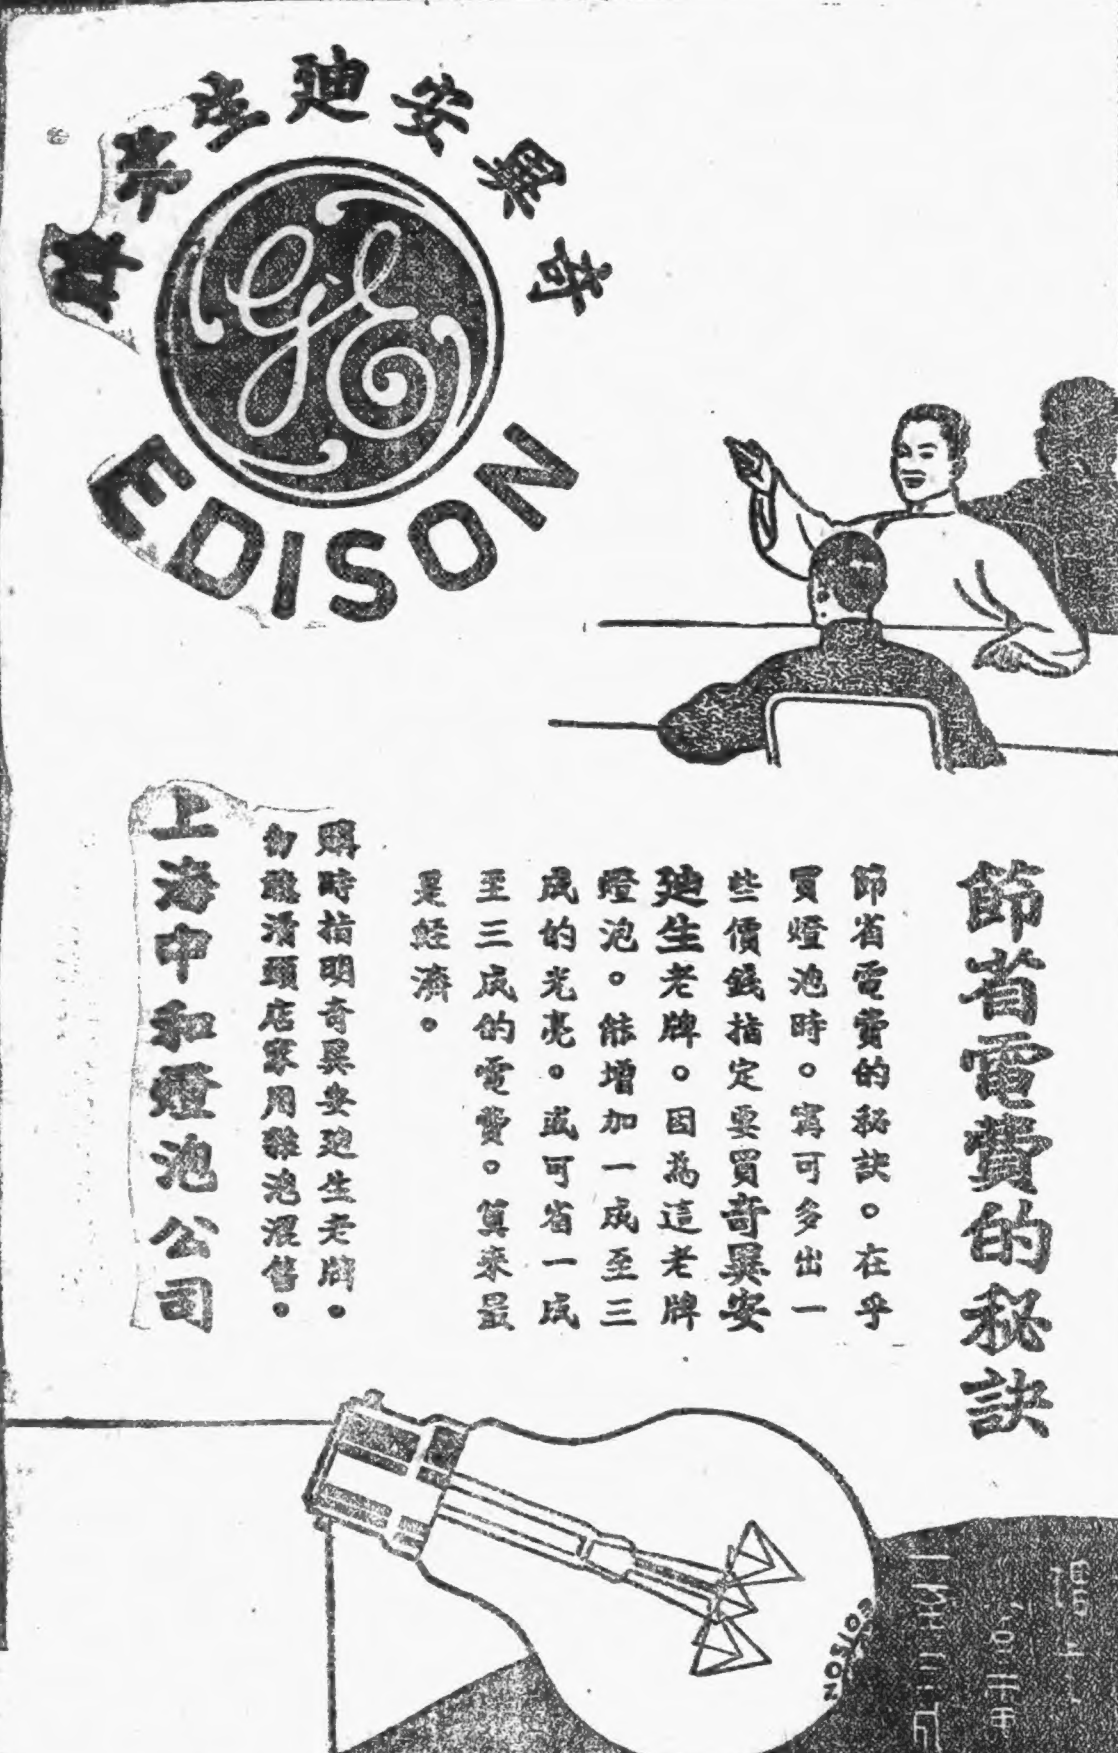 奇異安廸生老牌
GE
EDISON
節省電費的秘訣
節省電費的秘訣。在乎
買燈泡時。寗可多出一
些價錢指定要買奇異安
廸生老牌。因為這老牌
燈泡。能增加一成至三
成的光亮。或可省一成
至三成的電費。算來最
是經濟。
購時指明奇異安廸生老牌。
勿聽滑頭店家用雜泡混售。
上海中和燈泡公司
EDISON